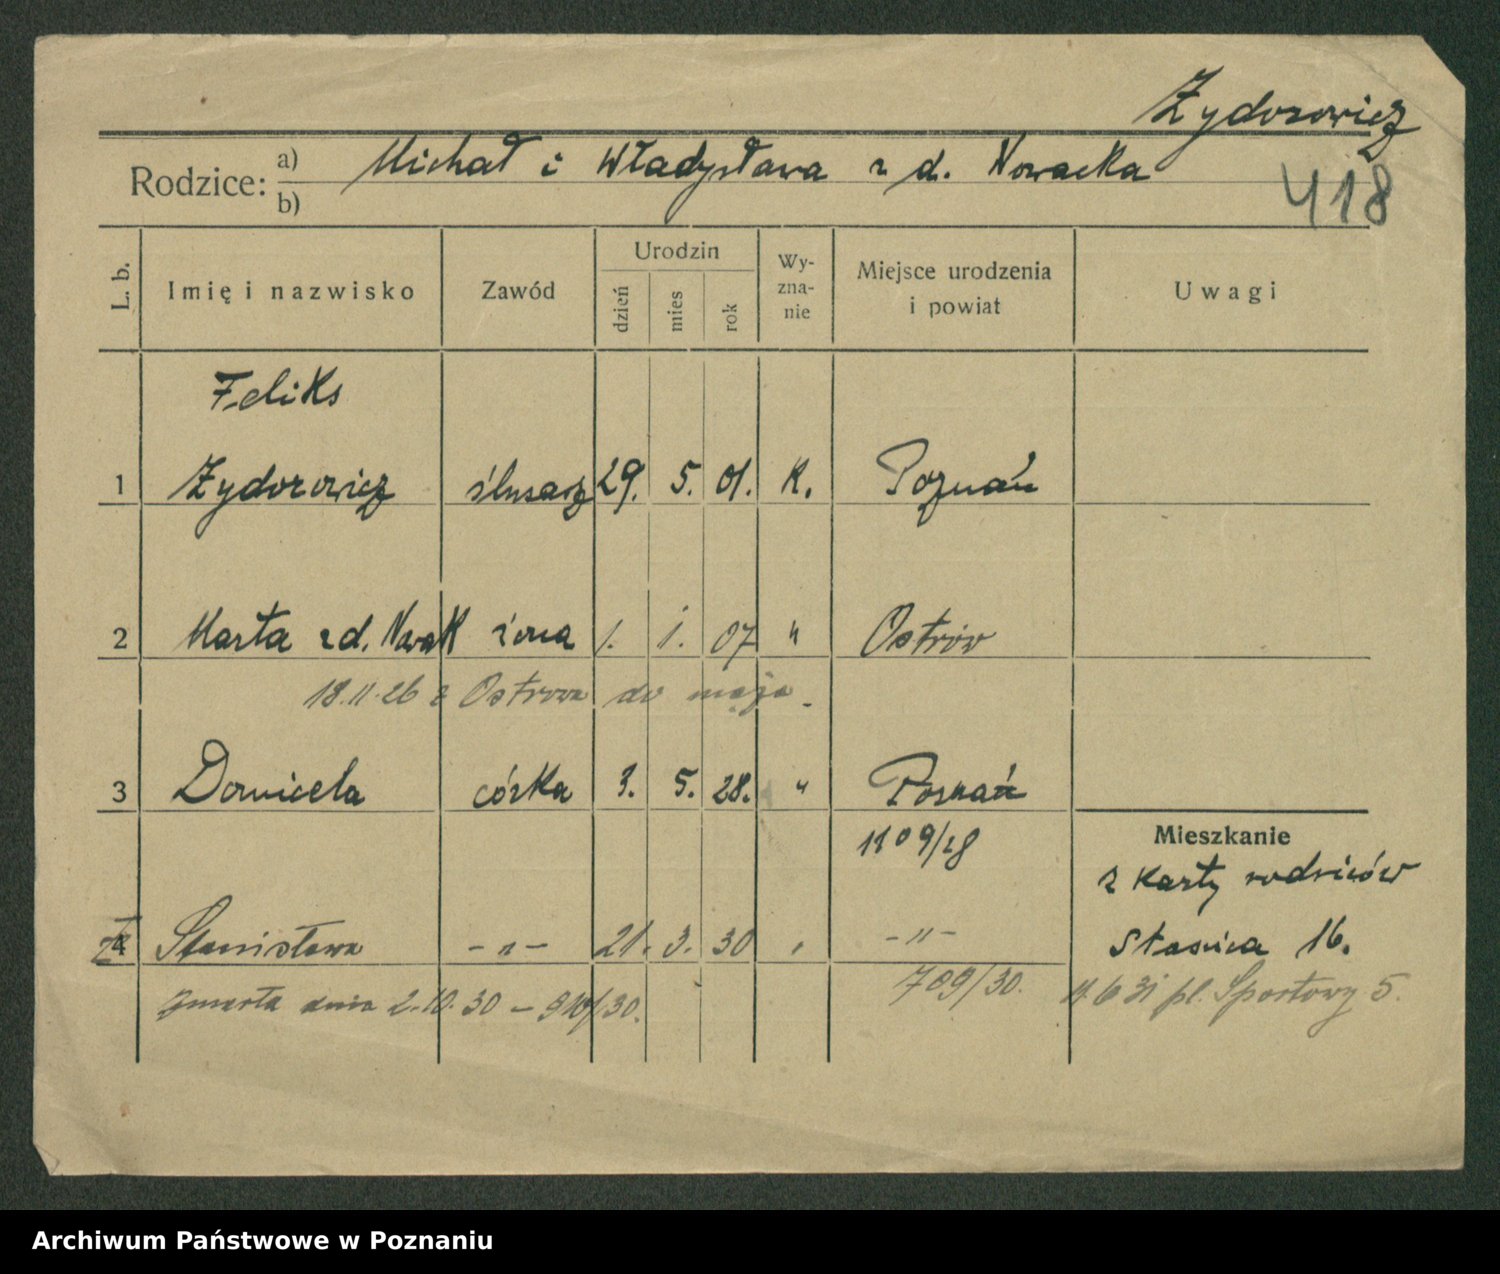 Żydorowicz
Rodzice: a) Michał i Władysława z d. Nowacka
b)
418
L. b. Imię i nazwisko Zawód Urodzin dzień mies rok Wy-zna-nie Miejsce urodzenia i powiat Uwagi
Feliks
1 Żydorowicz ślusarz 29. 5. 01. K. Poznań
2 Marta z d. Nowak żona 1. 1. 07 " Ostrów
18.11.26 z Ostrowa do męża.
3 Domicela córka 3. 5. 28. " Poznań
1109/28
Mieszkanie
z karty rodziców
4 Stanisława -"- 21. 3. 30 " -"-
Staszica 16.
709/30.
zmarła dnia 2.10.30 - 910/30.
4.6 31 pl. Sportowy 5.
Archiwum Państwowe w Poznaniu